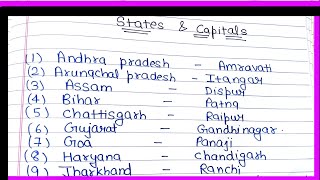 States & Capitals
(1) Andhra pradesh - Amravati
(2) Arunachal pradesh - Itangar
(3) Assam - Dispur
(4) Bihar - Patna
(5) Chattisgarh - Raipur
(6) Gujarat - Gandhinagar.
(7) Goa - Panaji
(8) Haryana - Chandigarh
(9) Jharkhand - Ranchi